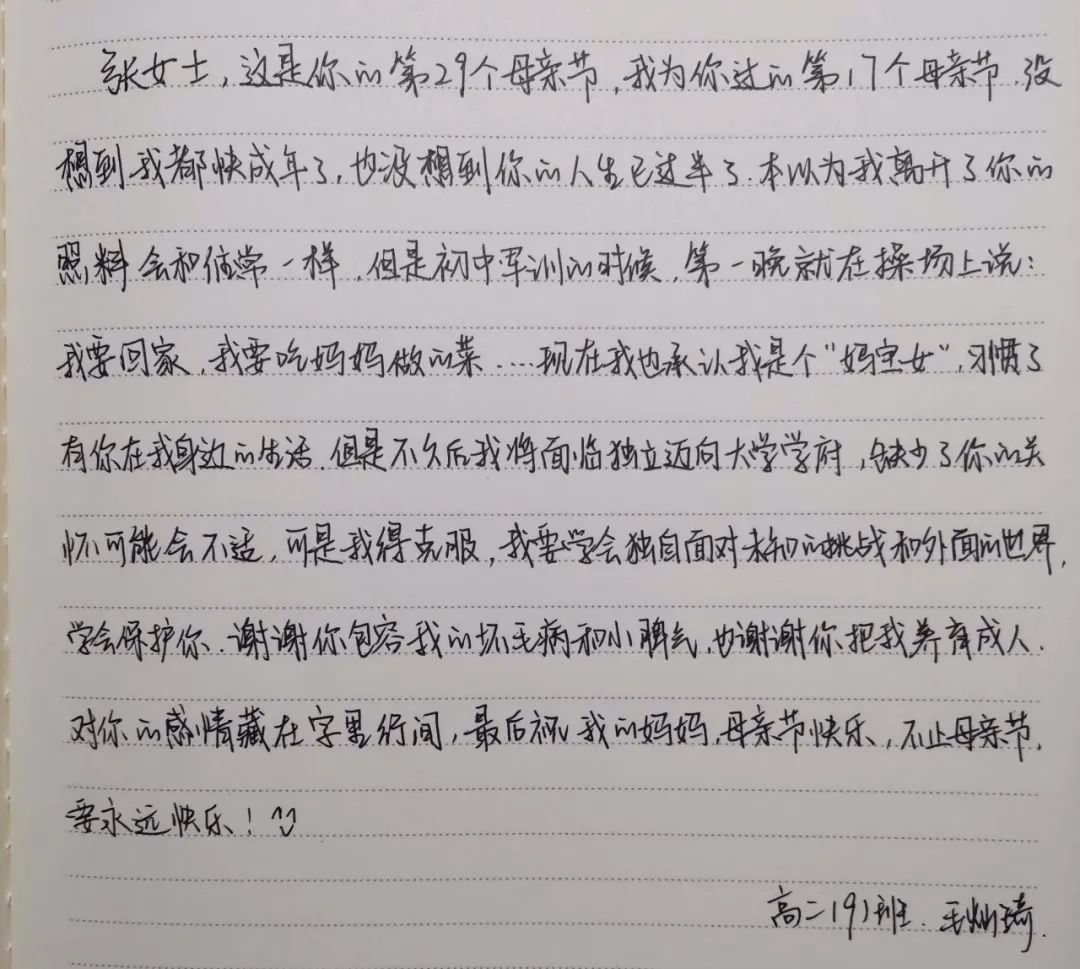 张女士，这是你的第29个母亲节，我为你过的第17个母亲节．没
想到我都快成年了，也没想到你的人生已过半了．本以为我离开了你的
照料会和往常一样，但是初中军训的时候，第一晚就在操场上说：
我要回家，我要吃妈妈做的菜．……现在我也承认我是个“妈宝女”，习惯了
有你在我身边的生活．但是不久后我将面临独立迈向大学学府，缺少了你的关
怀可能会不适，可是我得克服，我要学会独自面对未知的挑战和外面的世界，
学会保护你．谢谢你包容我的坏毛病和小脾气，也谢谢你把我养育成人．
对你的感情藏在字里行间，最后祝我的妈妈，母亲节快乐，不止母亲节，
要永远快乐！
高二19）班．王灿琦．